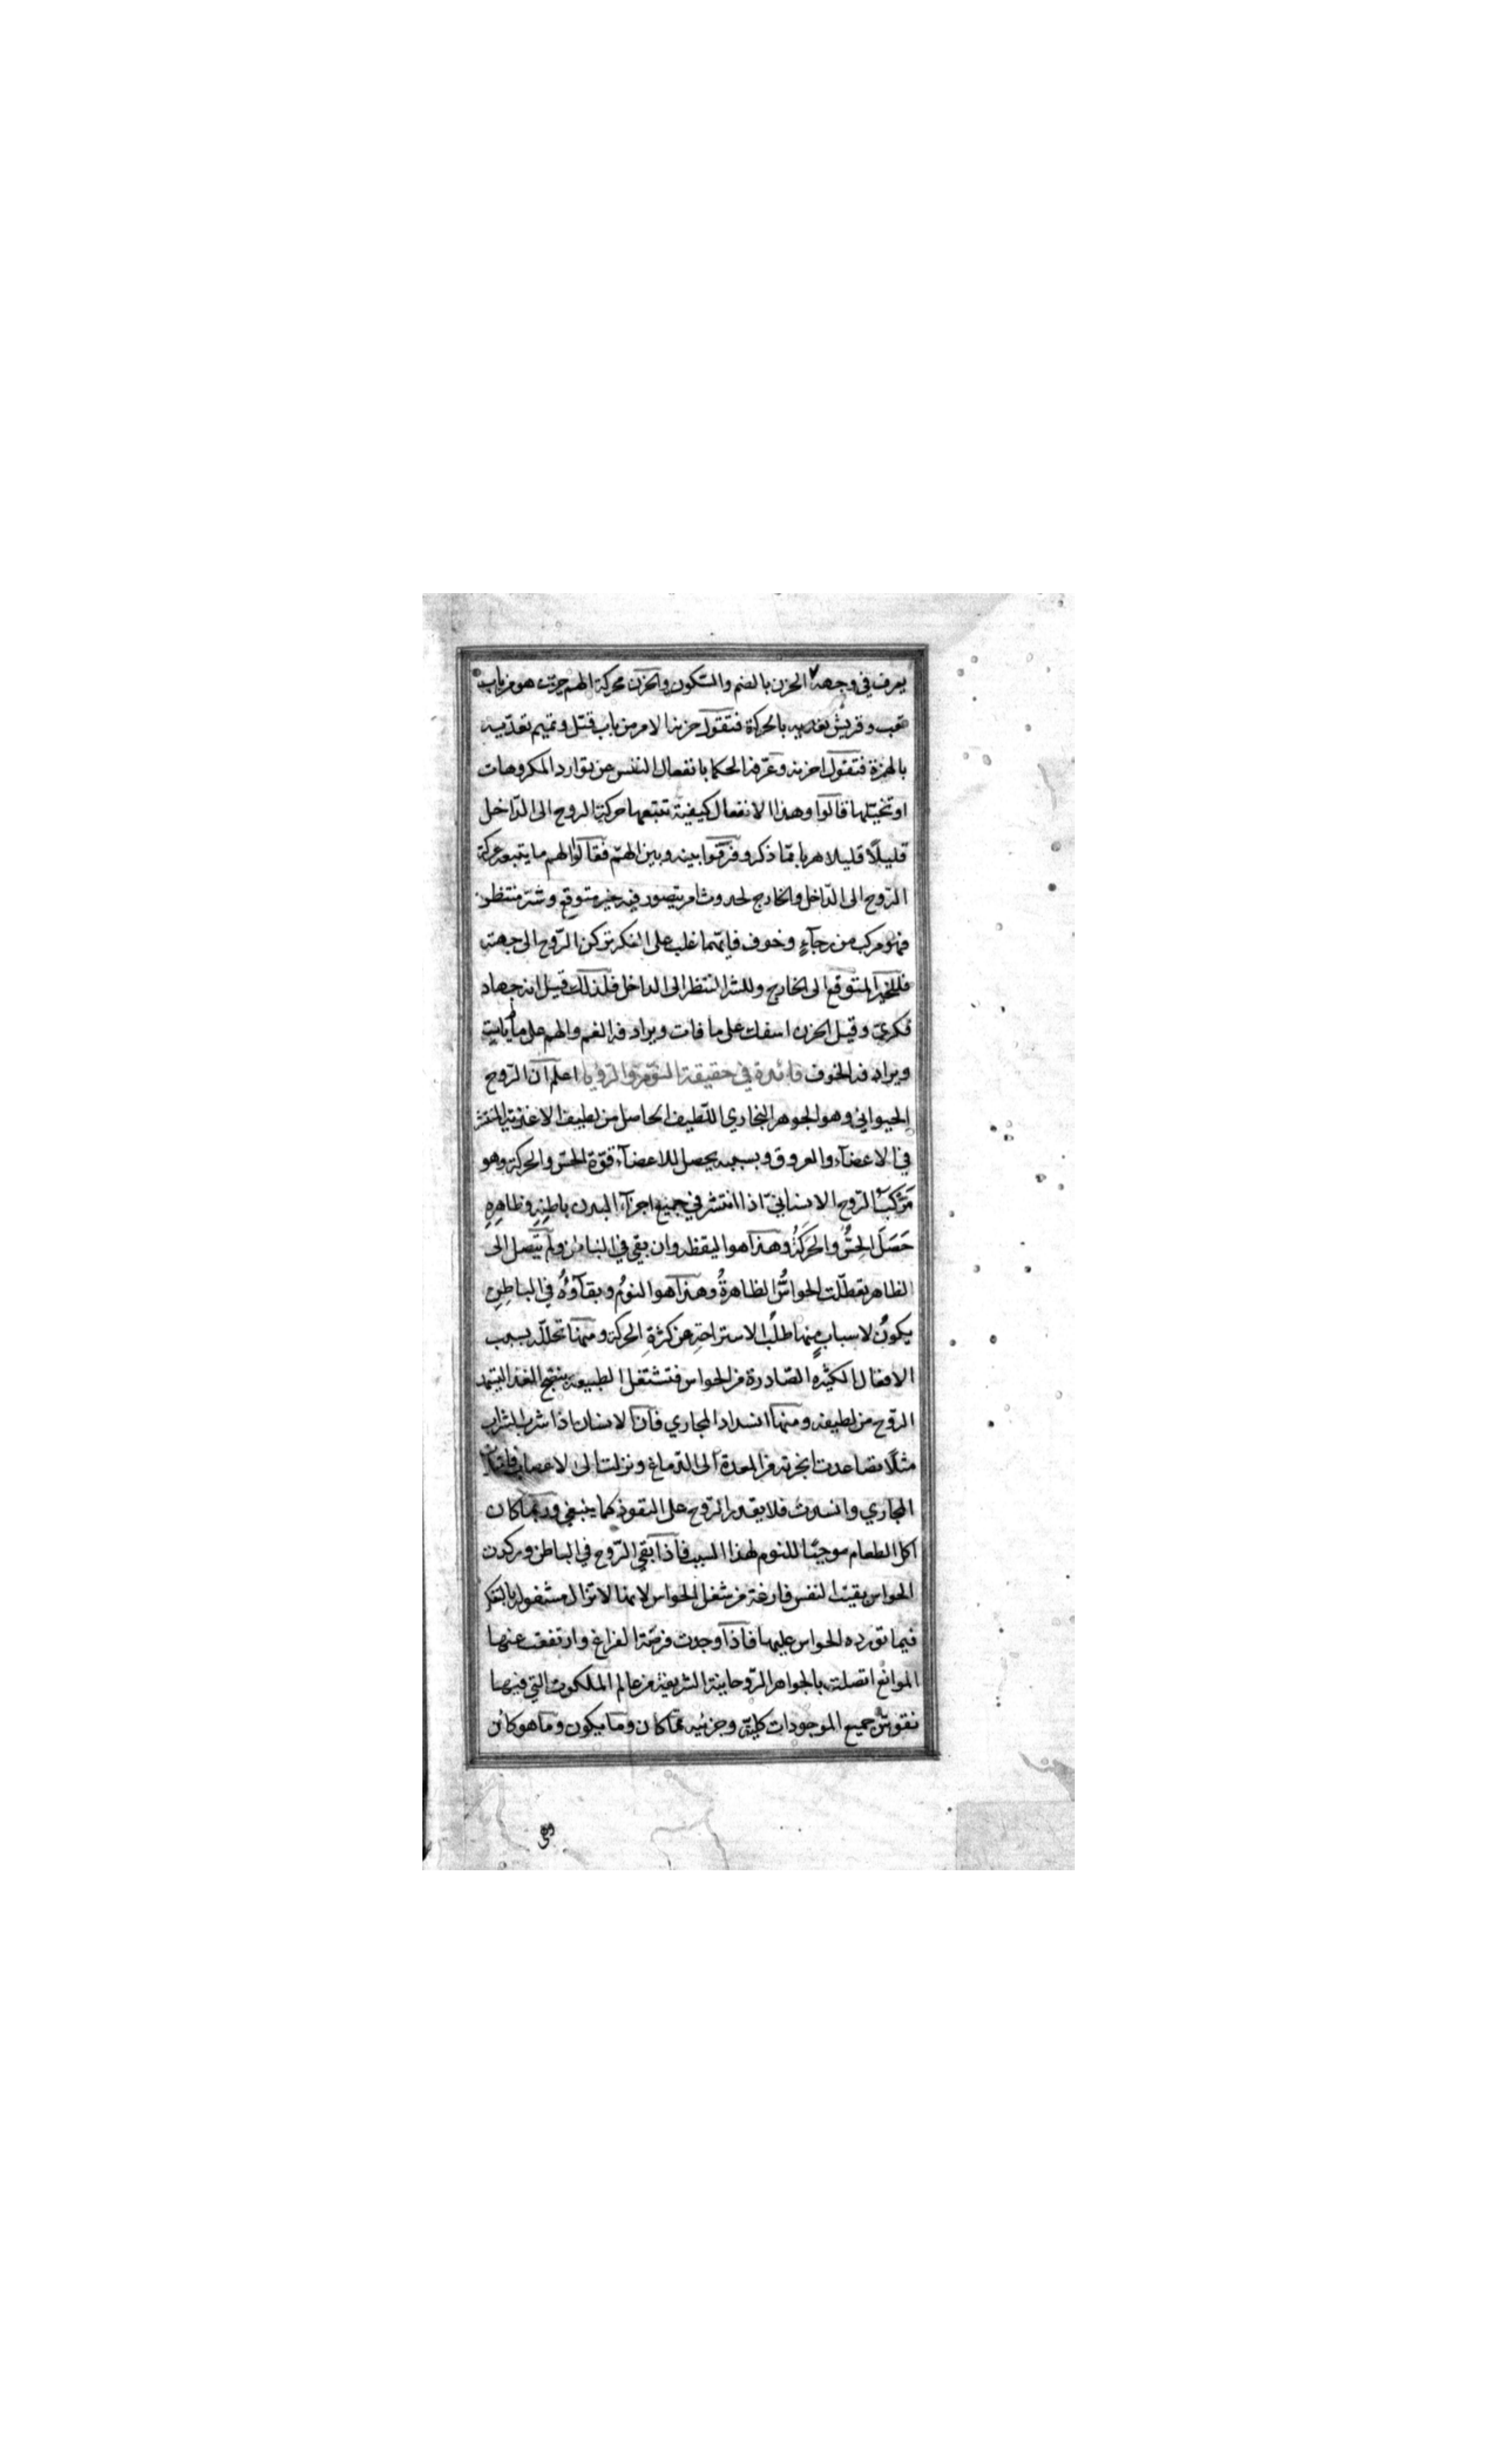 يعرف في وجهه الحزن بالضم والسكون والحزن محركة الهم حزن هو من باب
تعب وقريش تعديه بالحركة فتقول حزنه الامر من باب قتل وتميم تعديه
بالهمزة فتقول احزنه وعرفه الحكما بانفعال النفس عن توارد المكروهات
او تخيلها قالوا وهذا الانفعال كيفية تتبعها حركة الروح الى الداخل
قليلاً قليلا هربا مما ذكر وفرقوا بينه وبين الهم فقالوا الهم ما يتبعه حركة
الروح الى الداخل والخارج لحدوث امر يتصور فيه خير متوقع وشر منتظر
فهو مركب من رجآءٍ وخوف فايهما غلب على الفكر تحركت الروح الى جهته
فللخير المتوقع الى الخارج وللشر المنتظر الى الداخل فلذلك قيل انه جهاد
فكري وقيل الحزن اسفك على ما فات ويرادفه الغم والهم على ما يأتي
ويرادفه الخوف فائدة في حقيقة النوم والرؤيا اعلم ان الروح
الحيواني وهو الجوهر البخاري اللطيف الحاصل من لطيف الاغذية المنتشر
في الاعضآء والعروق وبسببه يحصل للاعضآء قوة الحس والحركة وهو
مَرْكَبُ الروح الانساني اذا انتشر في جميع اجزآء البدن باطنِهِ وظاهِرِهِ
حَصَلَ الحِسُّ والحَرَكَةُ وهذا هو اليقظه وان بقي في الباطن ولم يتصل الى
الظاهر تعطلت الحواسُّ الظاهرةُ وهذا هو النومُ وبقآؤُهُ في الباطِنِ
يكونُ لاسبابٍ منها طلبُ الاستراحةِ عن كثرةِ الحركة ومنها تحلله بسبب
الافعال الكثيره الصادرة من الحواس فتشتغل الطبيعة بنضج الغذا ليستمد
الروح من لطيفه ومنها انسداد المجاري فان الانسان اذا شرب الشراب
مثلاً تصاعدت ابخرته من المعدة الى الدماغ ونزلت الى الاعصاب فامتلات
المجاري وانسدت فلا يقدر الروح على النفوذ كما ينبغي وربما كان
اكل الطعام موجبا للنوم لهذا السبب فاذا بقي الروح في الباطن وركدت
الحواس بقيت النفس فارغة من شغل الحواس لانها لا تزال مشغولة بالتفكر
فيما تورده الحواس عليها فاذا وجدت فرصة الفراغ وارتفعت عنها
الموانع اتصلت بالجواهر الروحانية الشريفة من عالم الملكوت التي فيها
نقوش جميع الموجودات كلية وجزئيه مما كان وما يكون وما هو كائن